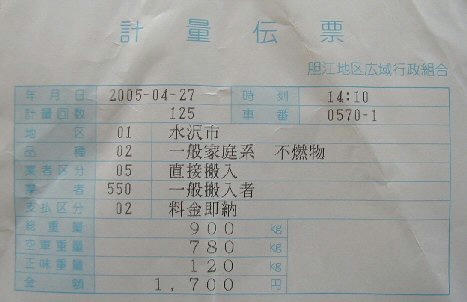 計量伝票
胆江地区広域行政組合
年月日 2005-04-27 時刻 14:10
計量回数 125 車番 0570-1
地区 01 水沢市
品種 02 一般家庭系 不燃物
業者区分 05 直接搬入
業者 550 一般搬入者
支払区分 02 料金即納
総重量 900 kg
空車重量 780 kg
正味重量 120 kg
金額 1,700 円